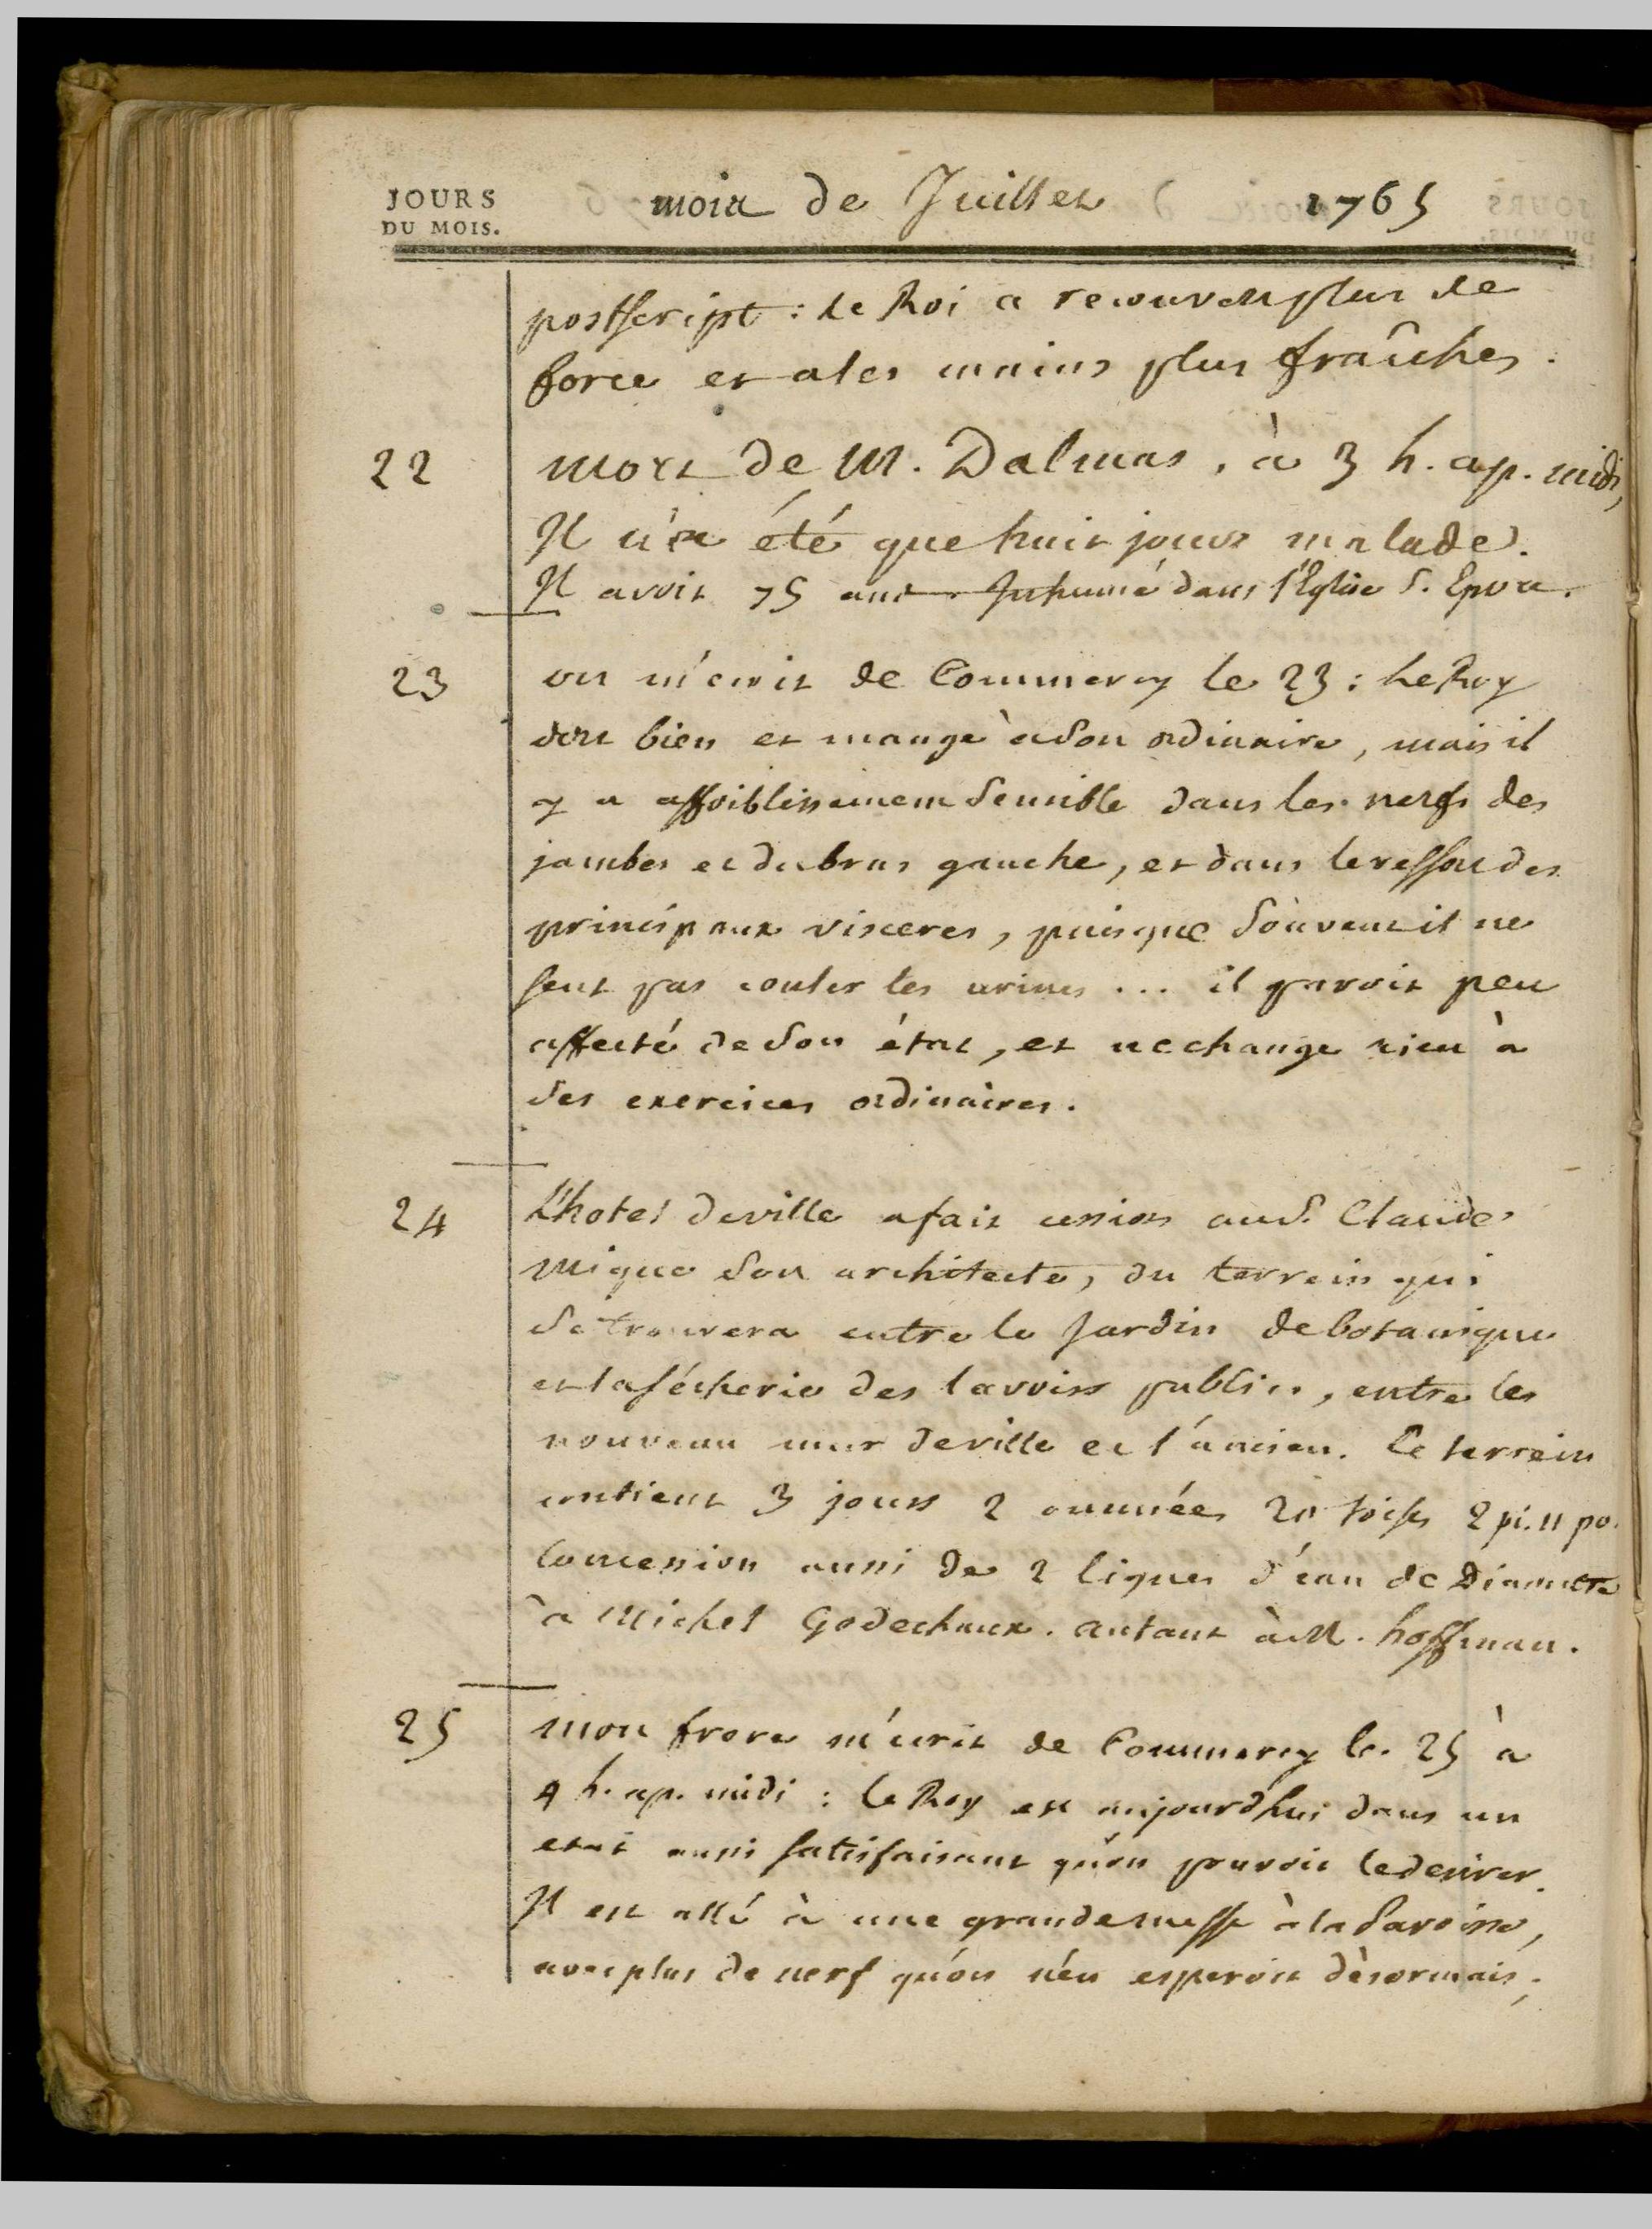 JOURS
DU MOIS.
mois de Juillet 1765
postscript : le Roi a recouvert plus de
force et a les mains plus fraîches.
22 mort de M. Dalmas, à 3 h. ap. midi,
Il n'a été que huit jours malade.
Il avoit 75 ans. Inhumé dans l'Eglise S. Epvre.
23 on m'écrit de Commercy le 23 : le Roy
dort bien et mange à son ordinaire, mais il
y a affoiblissement sensible dans les nerfs des
jambes et du bras gauche, et dans le ressort des
principaux visceres, puisque souvent il ne
sent pas couler les urines ... il paroit peu
affecté de son état, et ne change rien à
ses exercices ordinaires.
24 L'hotel de ville a fait cession au S. Claude
Mique son architecte, du terrein qui
se trouvera entre le Jardin de botanique
et la sécherie des lavoirs publics, entre les
nouveau mur de ville et l'ancien. Ce terrein
contient 3 jours 2 ommées 20 toises 2 pi. 11 po.
Concession aussi de 2 lignes d'eau de Diametre
à Michel Godechaux. autant à M. hoffman.
25 mon frere m'écrit de Commercy le 25 à
4 h. ap. midi : le Roy est aujourdhui dans un
etat aussi satisfaisant qu'on pouvoit le desirer.
Il est allé à une grande messe à la Paroisse,
avec plus de nerf qu'on n'en esperoit dèsormais;